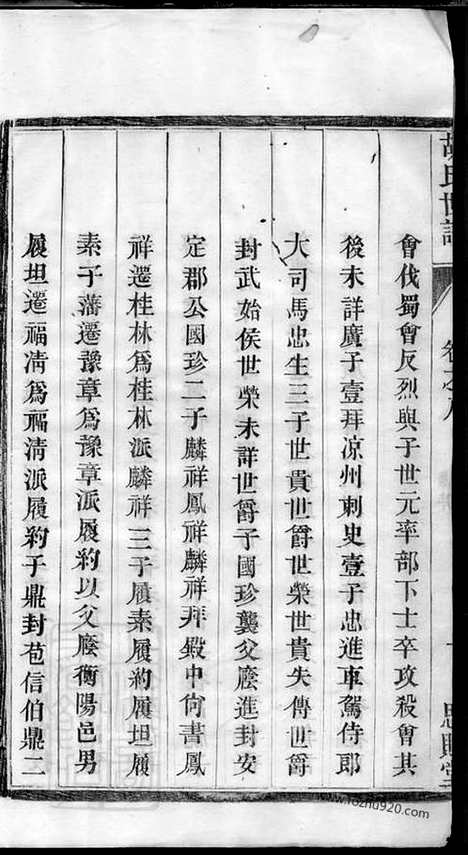 胡氏世譜
卷之八
思貽堂
會伐蜀會反烈與子世元率部下士卒攻殺會其
後未詳廣子壹拜凉州刺史壹子忠進車駕侍郎
大司馬忠生三子世貴世爵世榮世貴失傳世爵
封武始侯世榮未詳世爵子國珍襲父廕進封安
定郡公國珍二子麟祥鳳祥麟祥拜殿中尚書鳳
祥遷桂林為桂林派麟祥三子履素履約履坦履
素子藩遷豫章為豫章派履約以父廕衡陽邑男
履坦遷福淸為福清派履約子鼎封苞信伯鼎二
www.fozhu920.com